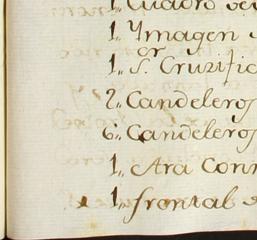 1,, Cuadro de
1,, Ymagen
1,, S.or Cruzific
2,, Candeleros
6,, Candeleros
1,, Ara con
1,, frontal